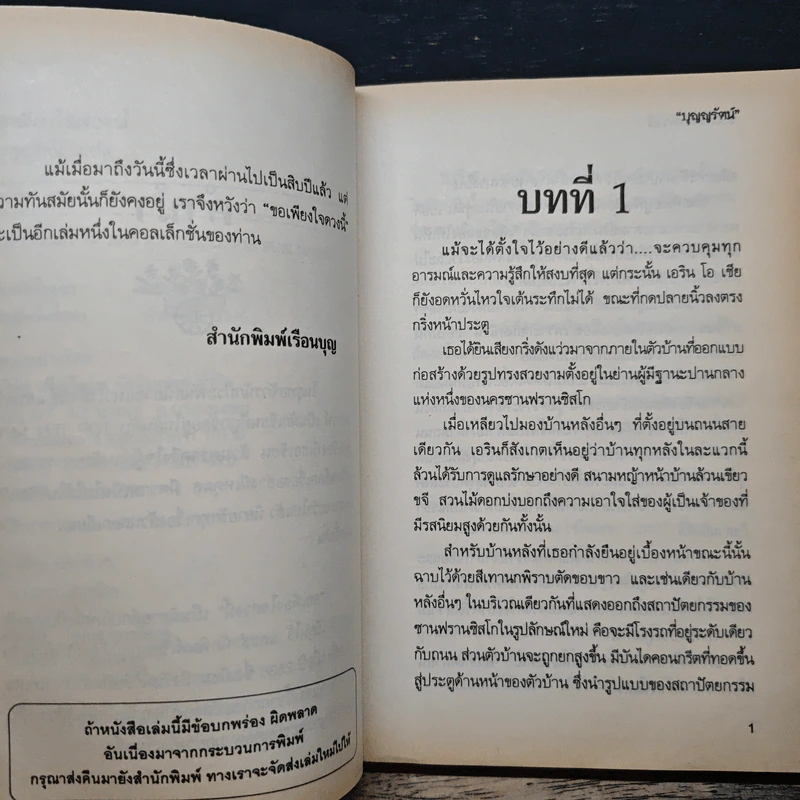 แม้เมื่อมาถึงวันนี้ซึ่งเวลาผ่านไปเป็นสิบปีแล้ว แต่
วามทันสมัยนั้นก็ยังคงอยู่ เราจึงหวังว่า “ขอเพียงใจดวงนี้”
ะเป็นอีกเล่มหนึ่งในคอลเล็กชั่นของท่าน
สำนักพิมพ์เรือนบุญ
ถ้าหนังสือเล่มนี้มีข้อบกพร่อง ผิดพลาด
อันเนื่องมาจากกระบวนการพิมพ์
กรุณาส่งคืนมายังสำนักพิมพ์ ทางเราจะจัดส่งเล่มใหม่ไปให้
“บุญญรัตน์”
บทที่ 1
แม้จะได้ตั้งใจไว้อย่างดีแล้วว่า....จะควบคุมทุก
อารมณ์และความรู้สึกให้สงบที่สุด แต่กระนั้น เอริน โอ เชีย
ก็ยังอดหวั่นไหวใจเต้นระทึกไม่ได้ ขณะที่กดปลายนิ้วลงตรง
กริ่งหน้าประตู
เธอได้ยินเสียงกริ่งดังแว่วมาจากภายในตัวบ้านที่ออกแบบ
ก่อสร้างด้วยรูปทรงสวยงามตั้งอยู่ในย่านผู้มีฐานะปานกลาง
แห่งหนึ่งของนครซานฟรานซิสโก
เมื่อเหลียวไปมองบ้านหลังอื่นๆ ที่ตั้งอยู่บนถนนสาย
เดียวกัน เอรินก็สังเกตเห็นอยู่ว่าบ้านทุกหลังในละแวกนี้
ล้วนได้รับการดูแลรักษาอย่างดี สนามหญ้าหน้าบ้านล้วนเขียว
ขจี สวนไม้ดอกบ่งบอกถึงความเอาใจใส่ของผู้เป็นเจ้าของที่
มีรสนิยมสูงด้วยกันทั้งนั้น
สำหรับบ้านหลังที่เธอกำลังยืนอยู่เบื้องหน้าขณะนี้นั้น
ฉาบไว้ด้วยสีเทานกพิราบตัดขอบขาว และเช่นเดียวกับบ้าน
หลังอื่นๆ ในบริเวณเดียวกันที่แสดงออกถึงสถาปัตยกรรมของ
ซานฟรานซิสโกในรูปลักษณ์ใหม่ คือจะมีโรงรถที่อยู่ระดับเดียว
กับถนน ส่วนตัวบ้านจะถูกยกสูงขึ้น มีบันไดคอนกรีตที่ทอดขึ้น
สู่ประตูด้านหน้าของตัวบ้าน ซึ่งนำรูปแบบของสถาปัตยกรรม
1